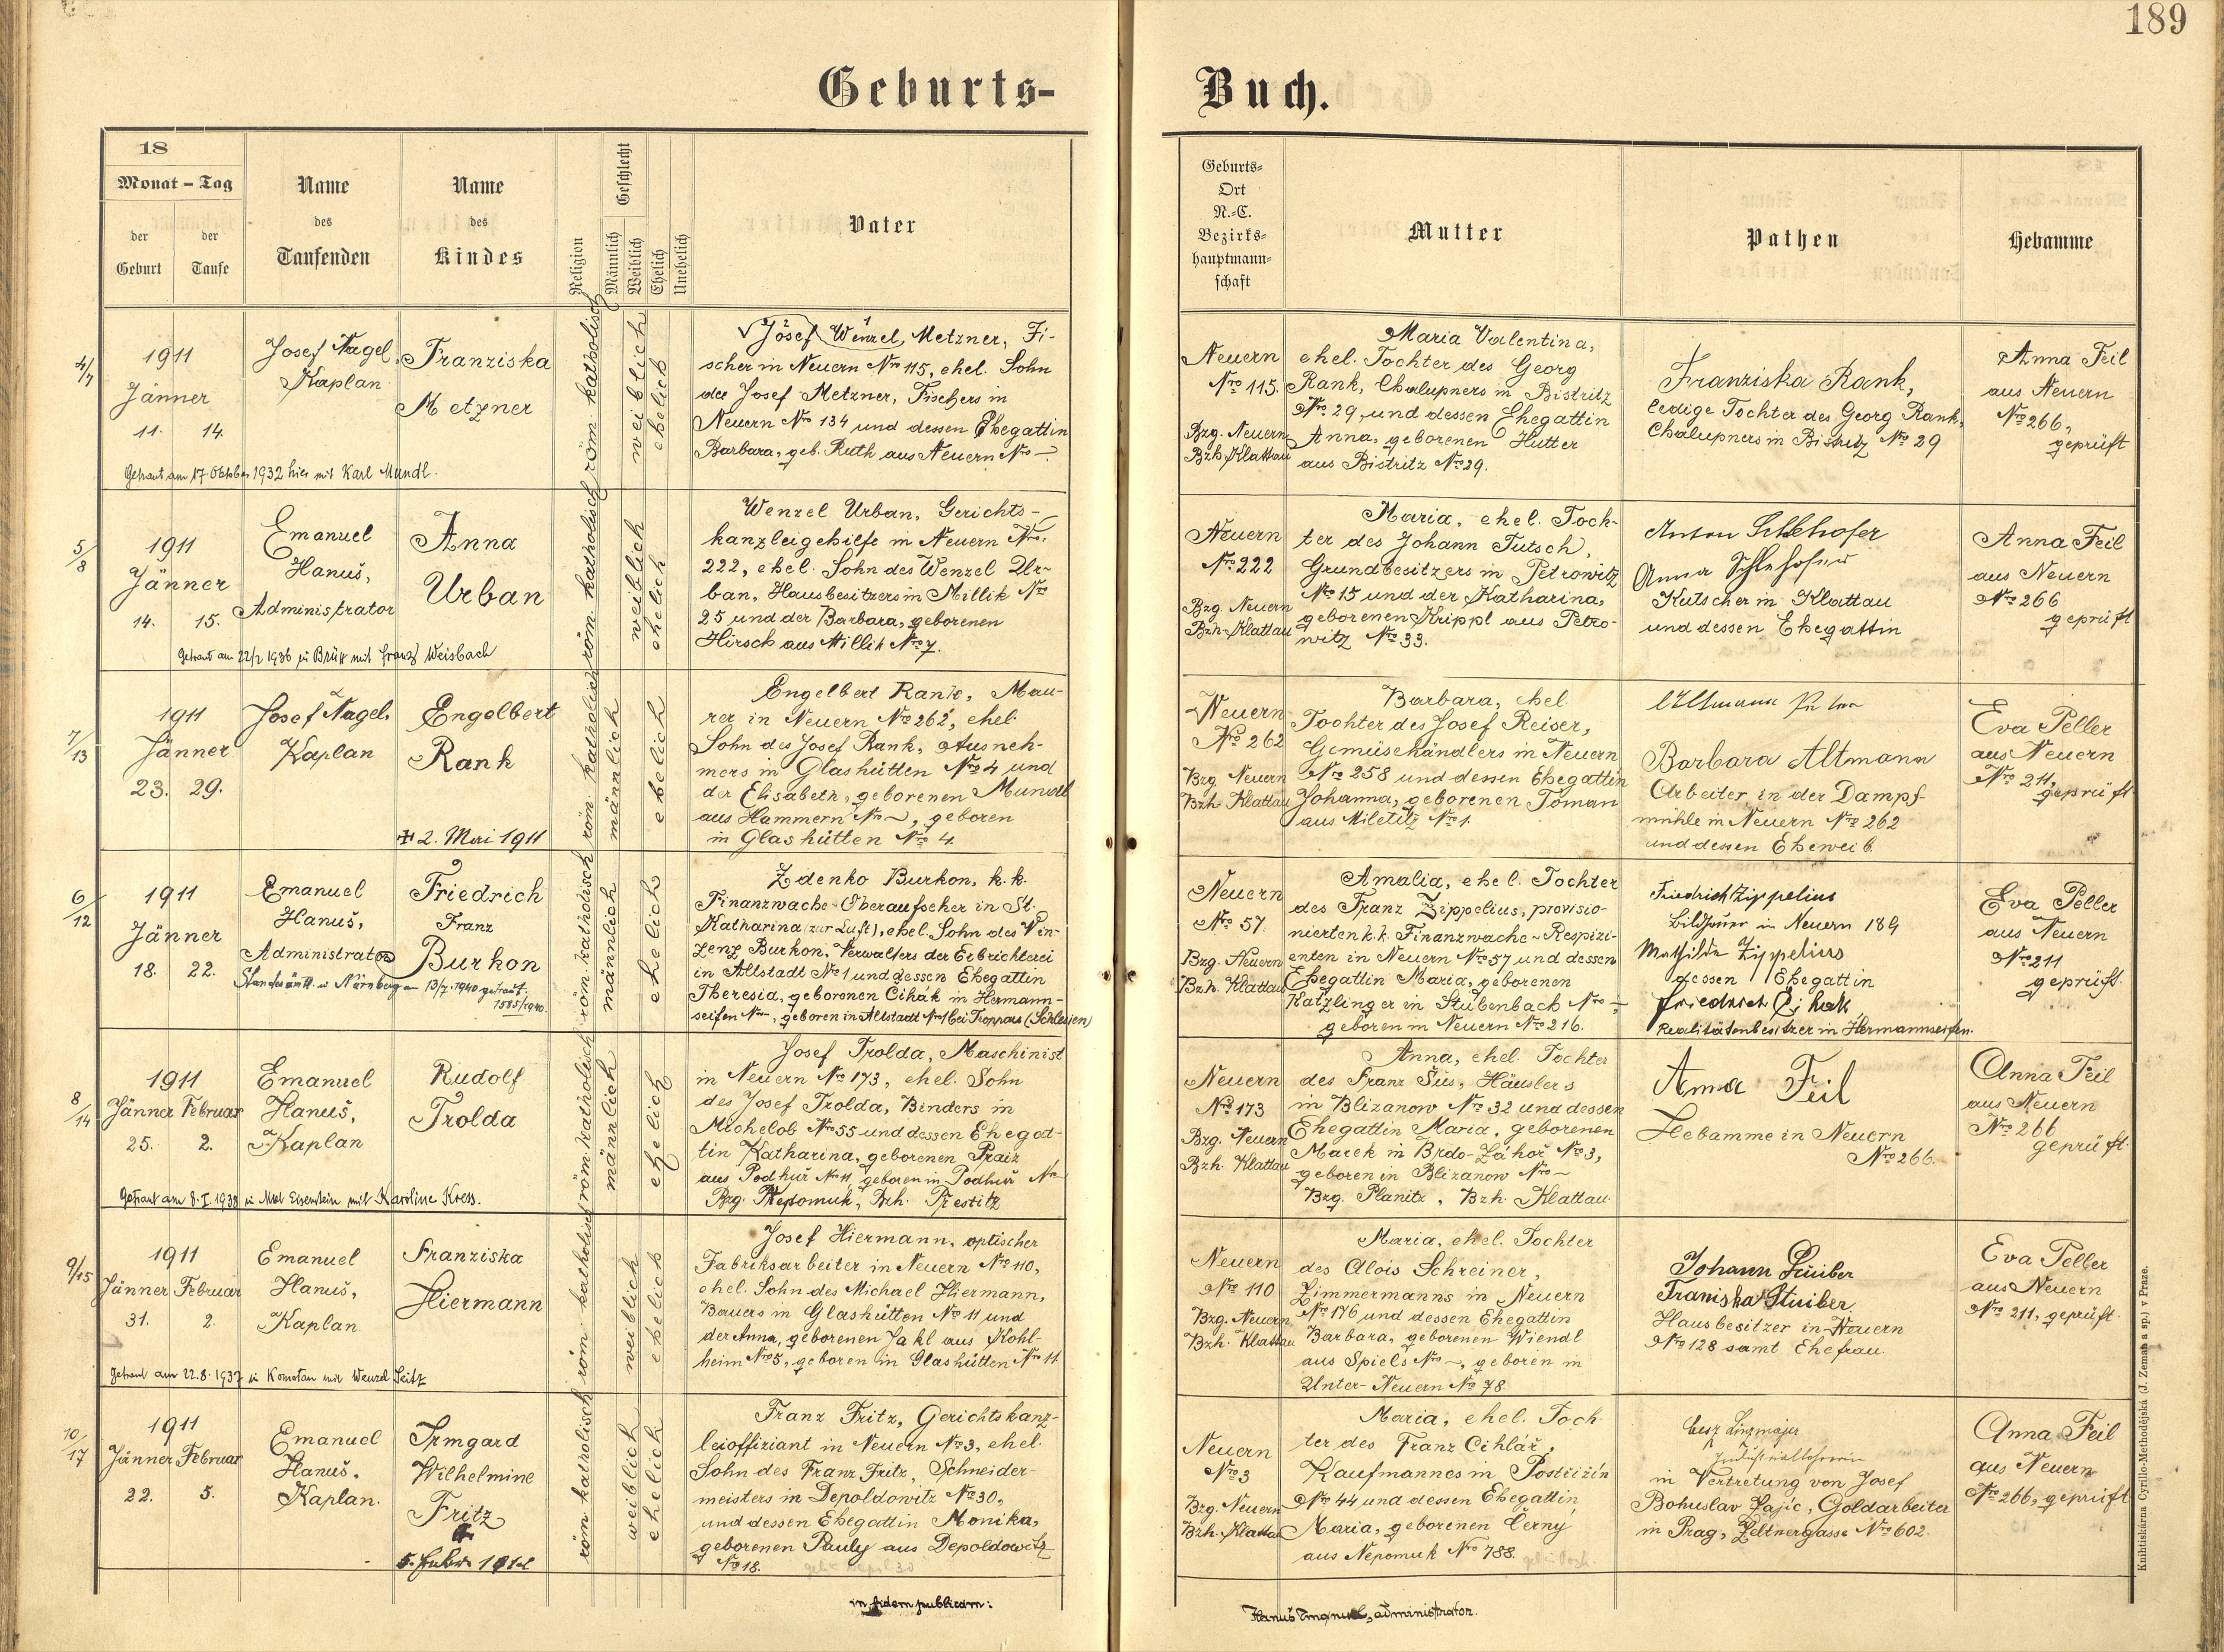 189
Geburts-
Buch.
18
Monat - Tag
der Geburt
der Taufe
Name des Taufenden
Name des Kindes
Religion
Geschlecht
Männlich
Weiblich
Ehelich
Unehelich
Vater
Geburts-
Ort
N.-C.
Bezirks-
hauptmann-
schaft
Mutter
Pathen
Hebamme
4/7
1911
Jänner
11. 14.
Josef Nagel,
Kaplan
Franziska
Metzner
röm. katholisch
weiblich
ehelich
Josef Wenzel Metzner, Fi-
scher in Neuern Nro 115, ehel. Sohn
des Josef Metzner, Fischers in
Neuern Nro 134 und dessen Ehegattin
Barbara, geb. Ruth aus Neuern Nro —
Getraut am 17 Oktober 1932 hier mit Karl Mundl.
Neuern
Nro 115.
Bzg. Neuern
Bzh. Klattau
Maria Valentina,
ehel. Tochter des Georg
Rank, Chalupners in Bistritz
Nro 29, und dessen Ehegattin
Anna, geborenen Hutter
aus Bistritz Nro 29.
Franziska Rank,
ledige Tochter des Georg Rank,
Chalupners in Bistritz Nro 29
Anna Feil
aus Neuern
Nro 266,
geprüft
5/8
1911
Jänner
14. 15.
Emanuel
Hanuš,
Administrator
Anna
Urban
röm. katholisch
weiblich
ehelich
Wenzel Urban, Gerichts-
kanzleigehilfe in Neuern Nro.
222, ehel. Sohn des Wenzel Ur-
ban, Hausbesitzers in Millik Nro
25 und der Barbara, geborenen
Hirsch aus Millik Nro 7.
Getraut am 22/2 1936 in Brüx mit Franz Weisbach
Neuern
Nro 222
Bzg. Neuern
Bzh. Klattau
Maria, ehel. Toch-
ter des Johann Tutsch,
Grundbesitzers in Petrowitz
Nro 15 und der Katharina,
geborenen Krippl aus Petro-
witz Nro 33.
Anton Schlehofer
Anna Schlehofer
Kutscher in Klattau
und dessen Ehegattin
Anna Feil
aus Neuern
Nro 266
geprüft
7/13
1911
Jänner
23. 29.
Josef Nagel,
Kaplan
Engelbert
Rank
✠ 2. Mai 1911
röm. katholisch
männlich
ehelich
Engelbert Rank, Mau-
rer in Neuern Nro 262, ehel.
Sohn des Josef Rank, Ausneh-
mers in Glashütten Nro 4 und
der Elisabeth, geborenen Mundl
aus Hammern Nro ~, geboren
in Glashütten Nro 4.
Neuern
Nro 262
Bzg. Neuern
Bzh. Klattau
Barbara, ehel.
Tochter des Josef Reiser,
Gemüsehändlers in Neuern
Nro 258 und dessen Ehegattin
Johanna, geborenen Toman
aus Miletitz Nro 1.
Altmann
Barbara Altmann
Arbeiter in der Dampf-
mühle in Neuern Nro 262
und dessen Eheweib.
Eva Peller
aus Neuern
Nro 211,
geprüft
6/12
1911
Jänner
18. 22.
Emanuel
Hanuš,
Administrator
Friedrich
Franz
Burkon
Standesamtl. in Nürnberg am 13/7. 1940 getraut.
1585/1940.
röm. katholisch
männlich
ehelich
Zdenko Burkon, k. k.
Finanzwache-Oberaufseher in St.
Katharina (zur Luft), ehel. Sohn des Vin-
zenz Burkon, Verwalters der Erbrichterei
in Altstadt Nro 1 und dessen Ehegattin
Theresia, geborenen Cihák in Hermann-
seifen Nro —, geboren in Altstadt Nro 1 bei Troppau (Schlesien)
Neuern
Nro 57.
Bzg. Neuern
Bzh. Klattau
Amalia, ehel. Tochter
des Franz Zippelius, provisio-
nierten k. k. Finanzwache-Respizi-
enten in Neuern Nro 57 und dessen
Ehegattin Maria, geborenen
Katzlinger in Stubenbach Nro —,
geboren in Neuern Nro 216.
Friedrich Zippelius
Bildhauer in Neuern 189
Mathilde Zippelius
dessen Ehegattin
Friedrich Cihak
Realitätenbesitzer in Hermannseifen.
Eva Peller
aus Neuern
Nro 211
geprüft.
8/14
1911
Jänner Februar
25. 2.
Emanuel
Hanuš,
Kaplan
Rudolf
Trolda
röm. katholisch
männlich
ehelich
Josef Trolda, Maschinist
in Neuern Nro 173, ehel. Sohn
des Josef Trolda, Binders in
Michelob Nro 55 und dessen Ehegat-
tin Katharina, geborenen Praiz
aus Podhuř Nro 11 geboren in Podhuř Nro
Bzg. Nepomuk, Bzh. Přestitz
Getraut am 8. I. 1938 in Markt Eisenstein mit Karoline Kress.
Neuern
Nro 173
Bzg. Neuern
Bzh. Klattau
Anna, ehel. Tochter
des Franz Šus, Häuslers
in Blizanow Nro 32 und dessen
Ehegattin Maria, geborenen
Marek in Brdo-Záhoř Nro 3,
geboren in Blizanow Nro ~
Bzg. Planitz, Bzh. Klattau.
Anna Feil
Hebamme in Neuern
Nro 266.
Anna Feil
aus Neuern
Nro 266
geprüft.
9/15
1911
Jänner Februar
31. 2.
Emanuel
Hanuš,
Kaplan.
Franziska
Hiermann
röm. katholisch
weiblich
ehelich
Josef Hiermann, optischer
Fabriksarbeiter in Neuern Nro 110,
ehel. Sohn des Michael Hiermann,
Bauers in Glashütten Nro 11 und
der Anna, geborenen Jakl aus Kohl-
heim Nro 5, geboren in Glashütten Nro 11.
Getraut am 22.8.1937 in Komotau mit Wenzel Seitz
Neuern
Nro 110
Bzg. Neuern
Bzh. Klattau
Maria, ehel. Tochter
des Alois Schreiner,
Zimmermanns in Neuern
Nro 176 und dessen Ehegattin
Barbara, geborenen Wiendl
aus Spiels Nro ~, geboren in
Unter-Neuern Nro 78.
Johann Stuiber
Franiska Stuiber
Hausbesitzer in Neuern
Nro 128 samt Ehefrau.
Eva Peller
aus Neuern
Nro 211, geprüft.
10/17
1911
Jänner Februar
22. 5.
Emanuel
Hanuš,
Kaplan.
Irmgard
Wilhelmine
Fritz
röm. katholisch
weiblich
ehelich
Franz Fritz, Gerichtskanz-
leioffiziant in Neuern Nro 3, ehel.
Sohn des Franz Fritz, Schneider-
meisters in Depoldowitz Nro 30,
und dessen Ehegattin Monika,
geborenen Pauly aus Depoldowitz
Nro 18.
Neuern
Nro 3
Bzg. Neuern
Bzh. Klattau
Maria, ehel. Toch-
ter des Franz Cihlář,
Kaufmannes in Postřižin
Nro 44 und dessen Ehegattin
Maria, geborenen Černý
aus Nepomuk Nro 788.
in Vertretung von Josef
Bohuslav Pajic, Goldarbeiter
in Prag, Zeltnergasse Nro 602.
Anna Feil
aus Neuern
Nro 266, geprüft
in fidem publicam:
Hanuš Emanuel, administrator.
Knihtiskárna Cyrillo-Methodějská (J. Zeman a sp.) v Praze.